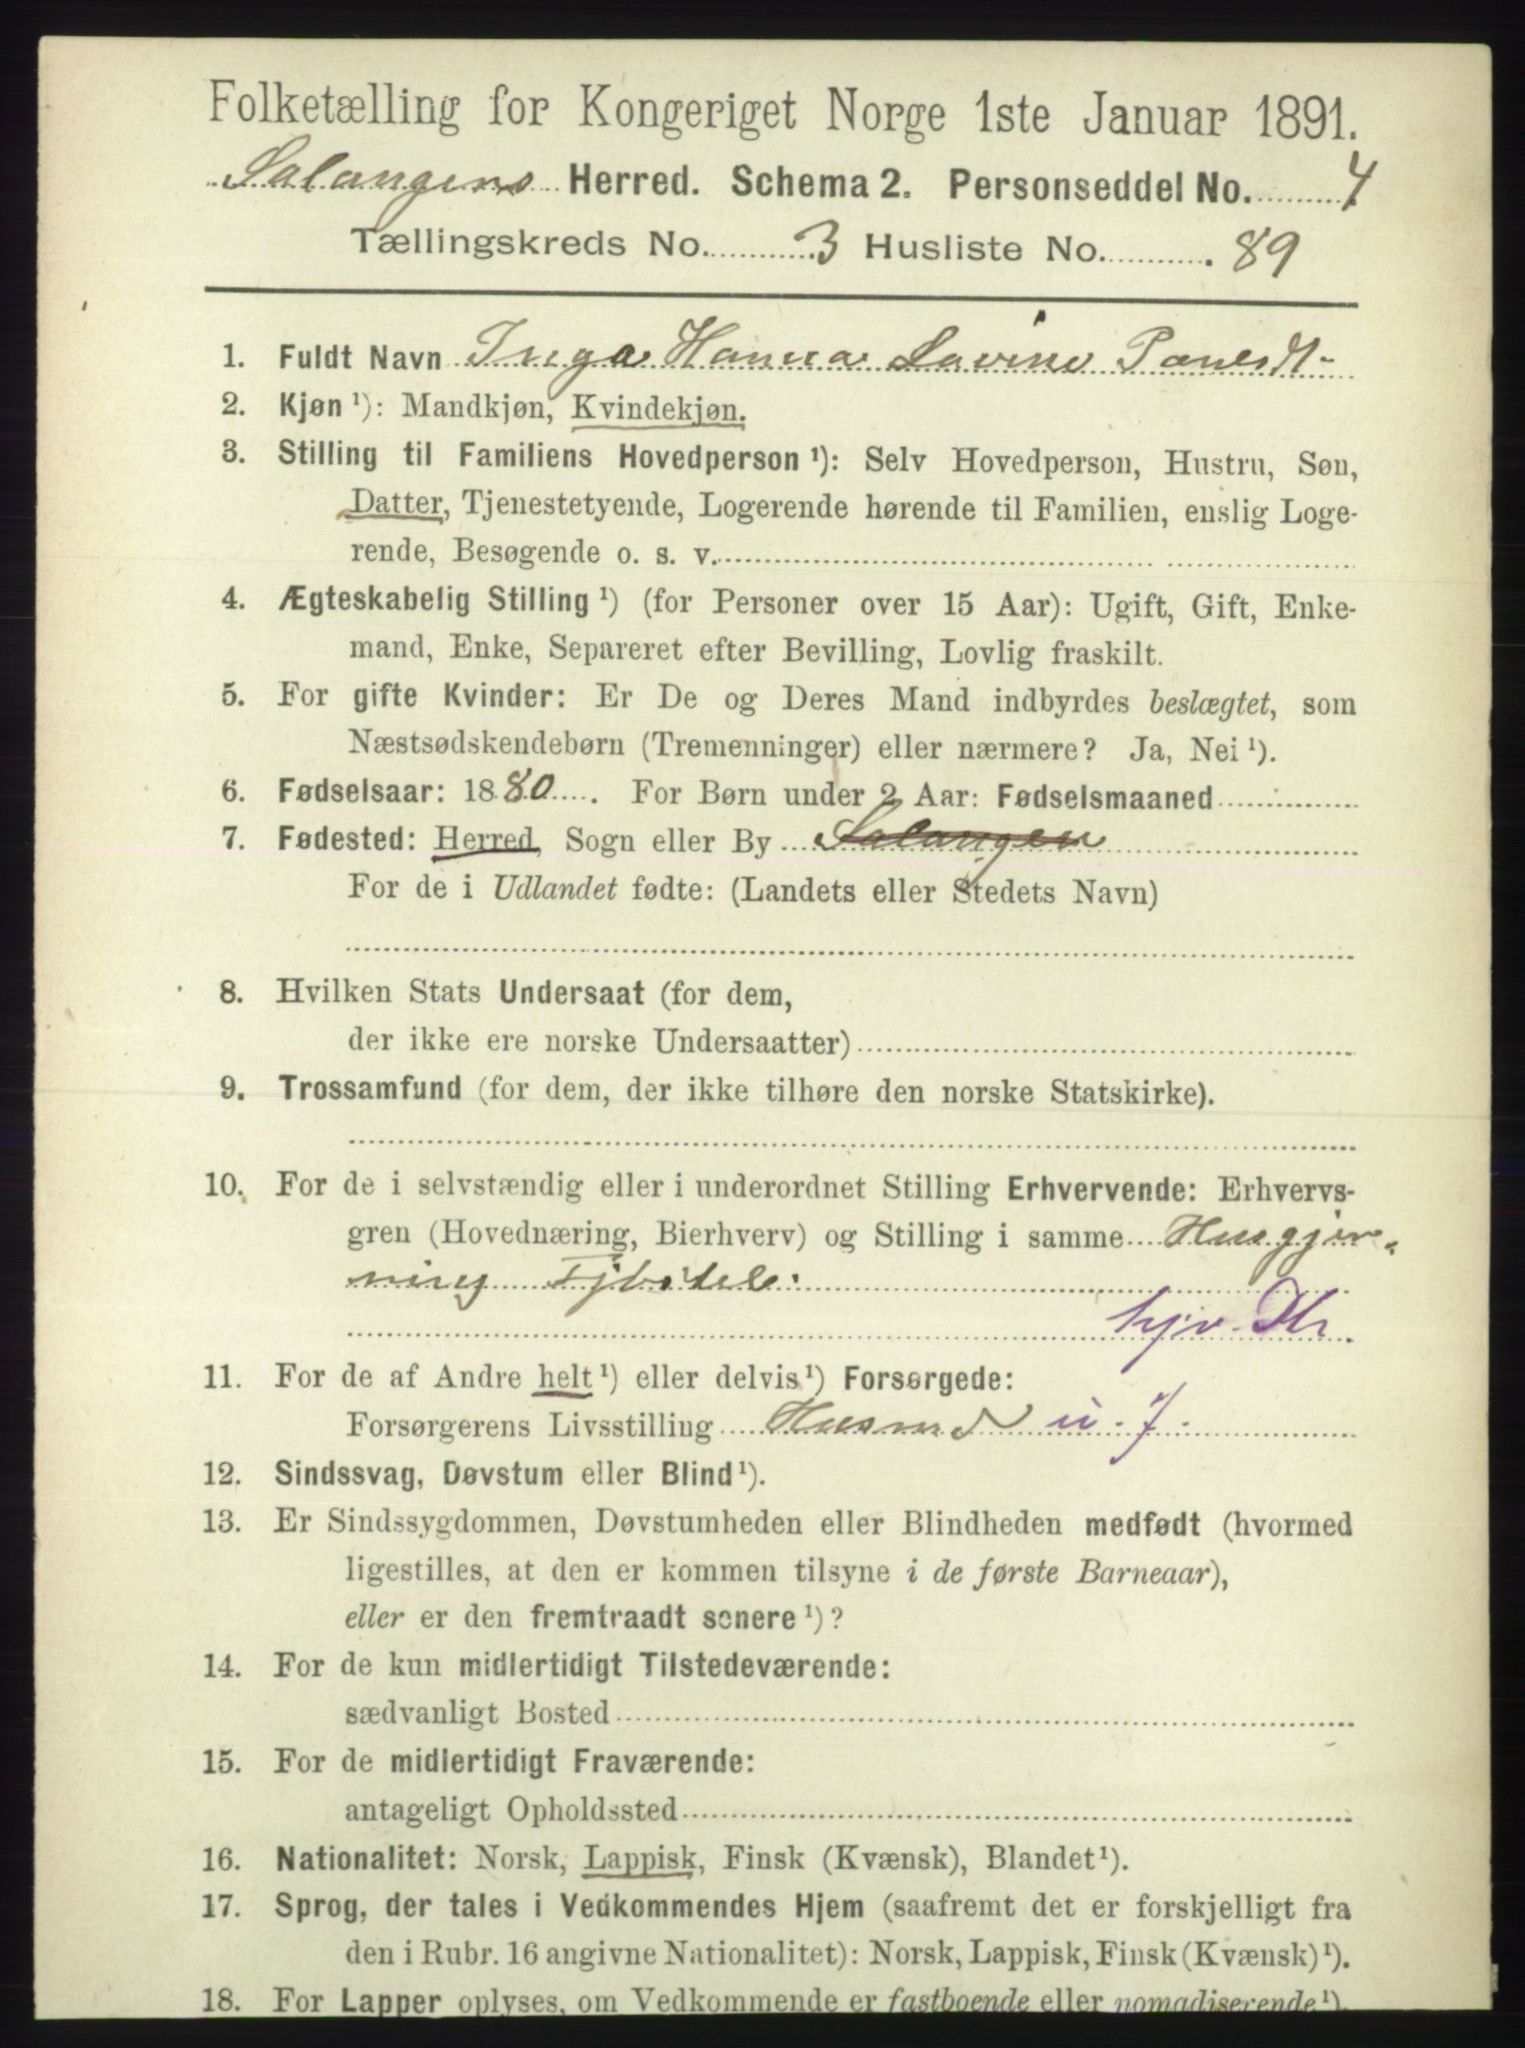 Folketælling for Kongeriget Norge 1ste Januar 1891.
Salangens Herred. Schema 2. Personseddel No. 4
Tællingskreds No. 3 Husliste No. 89
1. Fuldt Navn Inga Hanna Lavine
2. Kjøn ¹): Mandkjøn, Kvindekjøn.
3. Stilling til Familiens Hovedperson ¹): Selv Hovedperson, Hustru, Søn,
Datter, Tjenestetyende, Logerende hørende til Familien, enslig Loge-
rende, Besøgende o. s. v.
4. Ægteskabelig Stilling ¹) (for Personer over 15 Aar): Ugift, Gift, Enke-
mand, Enke, Separeret efter Bevilling, Lovlig fraskilt.
5. For gifte Kvinder: Er De og Deres Mand indbyrdes beslægtet, som
Næstsødskendebørn (Tremenninger) eller nærmere? Ja, Nei ¹).
6. Fødselsaar: 1880. For Børn under 2 Aar: Fødselsmaaned
7. Fødested: Herred, Sogn eller By Salangen
For de i Udlandet fødte: (Landets eller Stedets Navn)
8. Hvilken Stats Undersaat (for dem,
der ikke ere norske Undersaatter)
9. Trossamfund (for dem, der ikke tilhøre den norske Statskirke).
10. For de i selvstændig eller i underordnet Stilling Erhvervende: Erhvervs-
gren (Hovednæring, Bierhverv) og Stilling i samme Husgjer-
ning
hjv. Dtr.
11. For de af Andre helt ¹) eller delvis ¹) Forsørgede:
Forsørgerens Livsstilling Husmd u. J.
12. Sindssvag, Døvstum eller Blind ¹).
13. Er Sindssygdommen, Døvstumheden eller Blindheden medfødt (hvormed
ligestilles, at den er kommen tilsyne i de første Barneaar),
eller er den fremtraadt senere ¹)?
14. For de kun midlertidigt Tilstedeværende:
sædvanligt Bosted
15. For de midlertidigt Fraværende:
antageligt Opholdssted
16. Nationalitet: Norsk, Lappisk, Finsk (Kvænsk), Blandet ¹).
17. Sprog, der tales i Vedkommendes Hjem (saafremt det er forskjelligt fra
den i Rubr. 16 angivne Nationalitet): Norsk, Lappisk, Finsk (Kvænsk) ¹).
18. For Lapper oplyses, om Vedkommende er fastboende eller nomadiserende ¹).